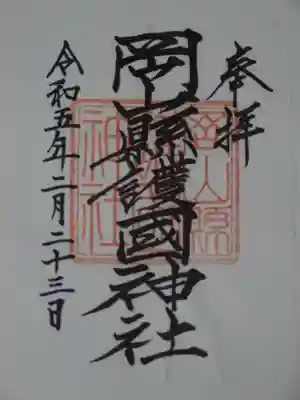 奉拝
岡山縣護國神社
令和五年二月二十三日